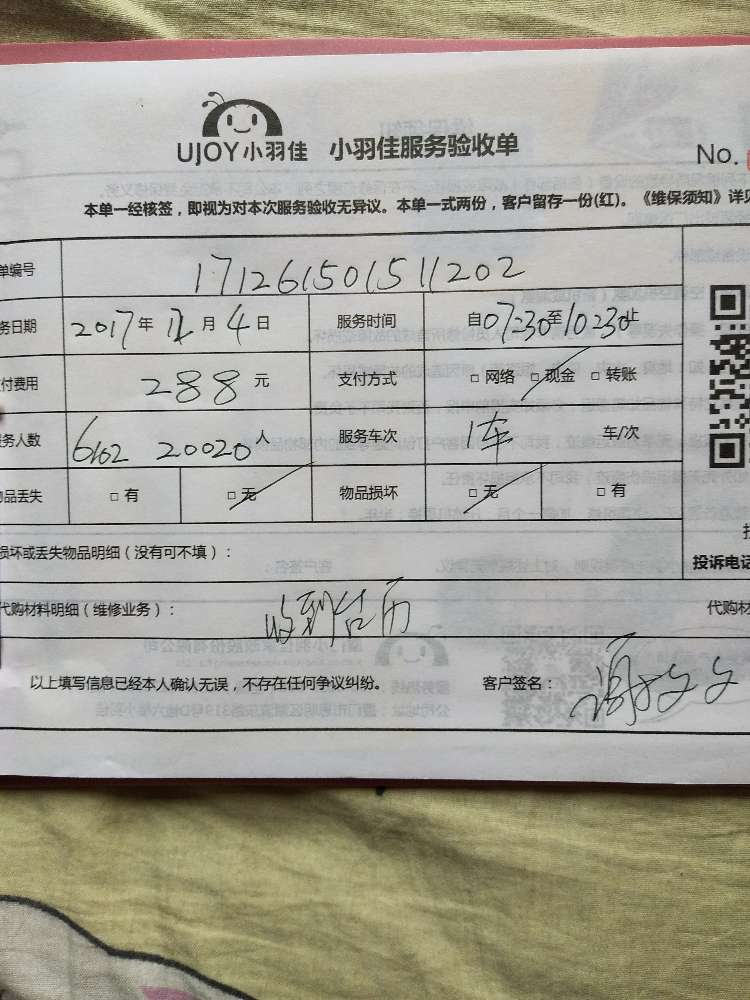 UJOY小羽佳 小羽佳服务验收单
No.
本单一经核签，即视为对本次服务验收无异议。本单一式两份，客户留存一份(红)。《维保须知》详见
单编号 171261501511202
务日期 2017年12月4日 服务时间 自07:30至10:30止
付费用 288元 支付方式 □网络 □现金 □转账
务人数 6102 20020人 服务车次 1车 车/次
物品丢失 □有 □无 物品损坏 □无 □有
损坏或丢失物品明细（没有可不填）：
投诉电话
代购材料明细（维修业务）： 收到台历 代购材
以上填写信息已经本人确认无误，不存在任何争议纠纷。 客户签名：